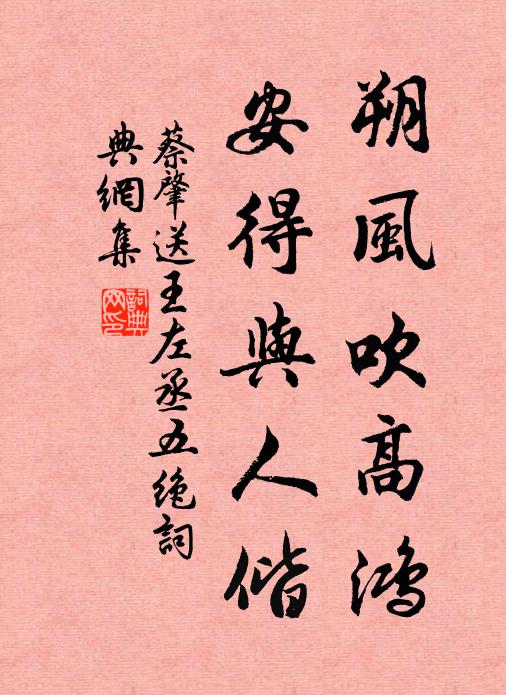 朔風吹高鴻
安得與人偕
蔡肇送王左丞五絶詞
典網集
詞典網印